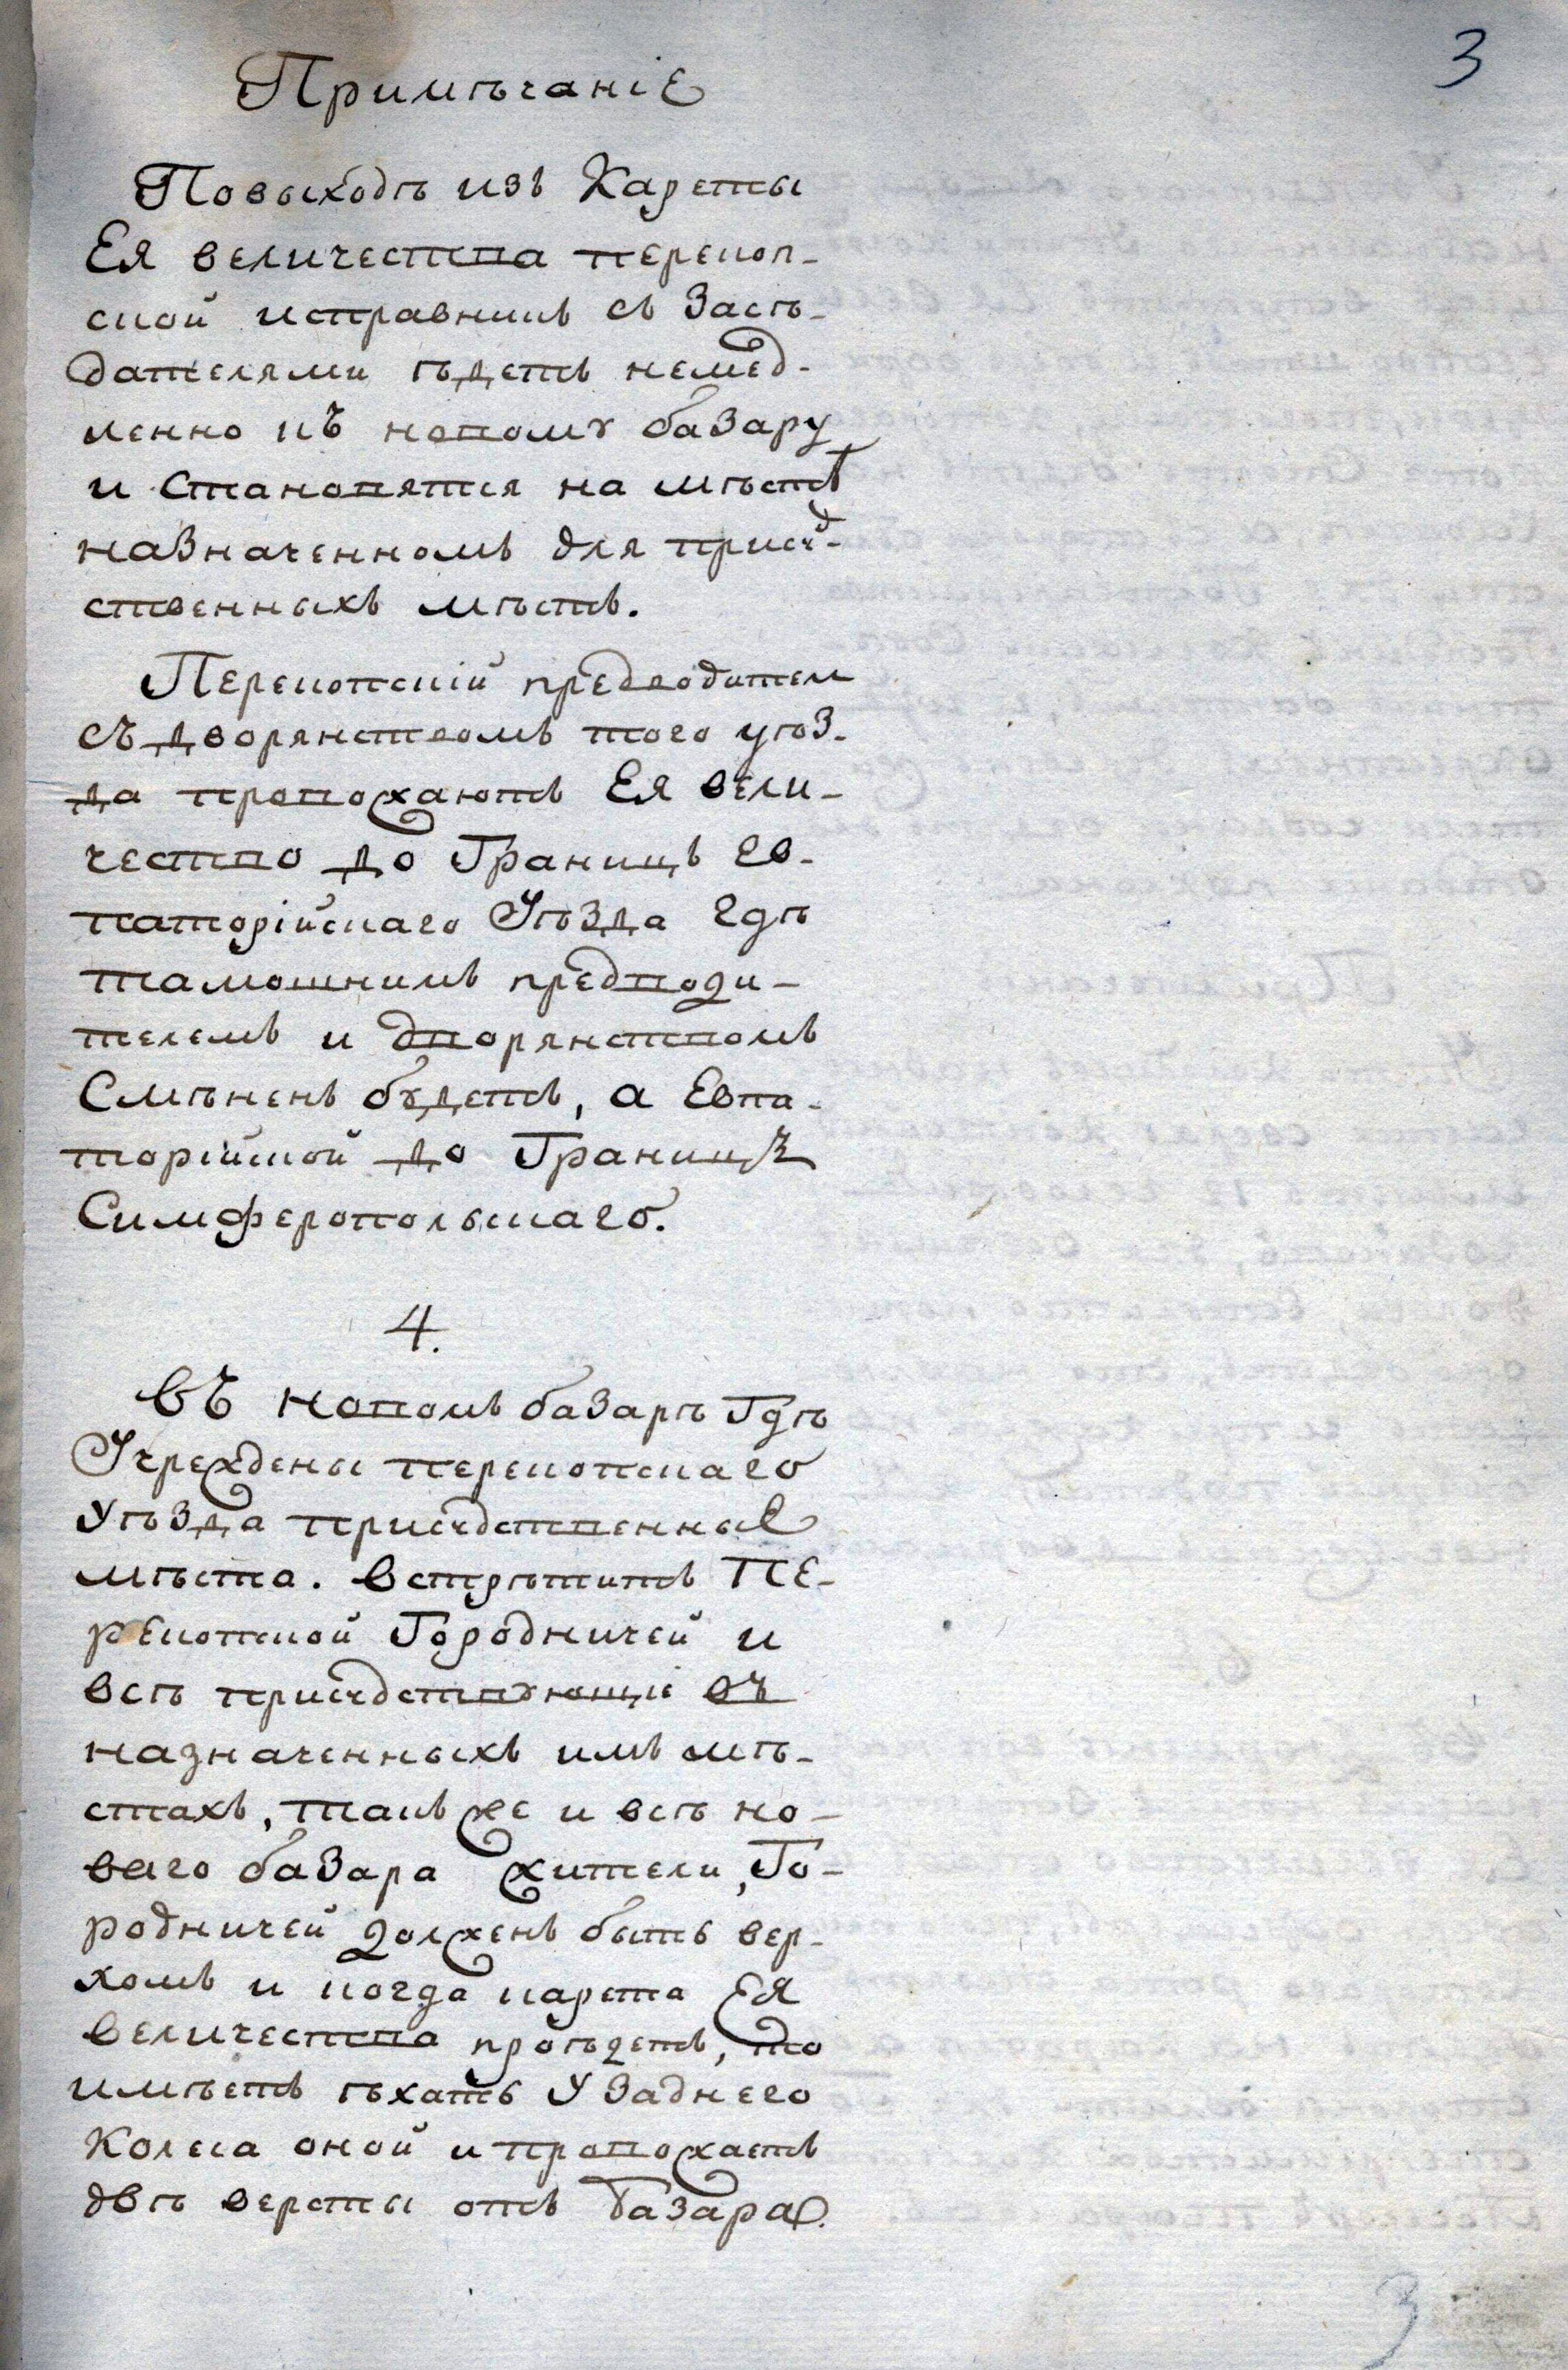 3
Примѣчаніе
Повыходѣ изъ Кареты
Ея величества перекоп-
ской исправникъ съ Засѣ-
дателями ѣдетъ немед-
ленно къ новому базару
и становятся на мѣстѣ
назначенномъ для присуд-
ственныхъ мѣстъ.
Перекопскій предводитель
съ дворянствомъ того уѣз-
да провожаютъ Ея вели-
чество до Границъ Ев-
паторійскаго Уѣзда гдѣ
тамошнимъ предводи-
телемъ и дворянствомъ
Смѣненъ будетъ, а Евпа-
торійской до Границъ
Симферопольскаго.
4.
Въ новомъ базарѣ Гдѣ
Учреждены перекопскаго
уѣзда присудственные
мѣста. встрѣтитъ Пе-
рекопской Городничей и
всѣ присудствующіе въ
назначенныхъ имъ мѣ-
стахъ, такъ же и всѣ но-
ваго базара жители, Го-
родничей долженъ быть вер-
хомъ и когда карета Ея
величества проѣдетъ, то
имѣетъ ѣхать у заднего
Колеса оной и провожаетъ
двѣ версты отъ базара.
3